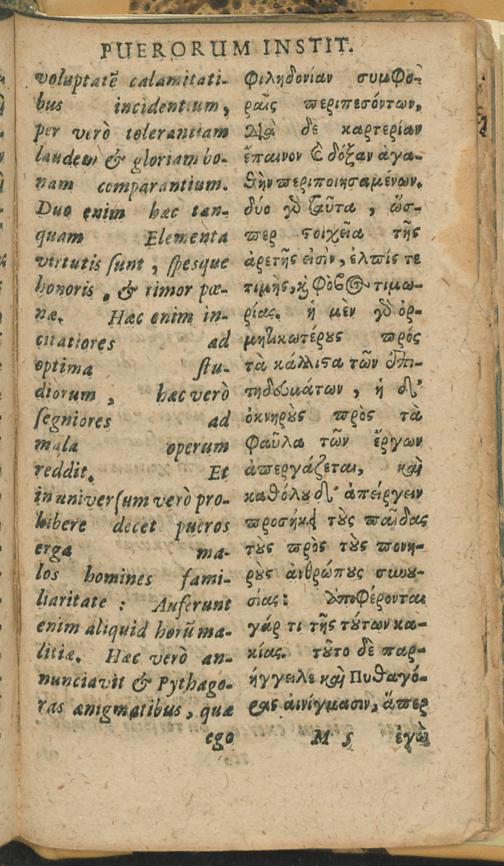 PUERORUM INSTIT.
voluptatē calamitati-
bus incidentium,
per verò tolerantiam
laudem & gloriam bo-
nam comparantium.
Duo enim hæc tan-
quam Elementa
virtutis sunt, spesque
honoris, & timor pœ-
næ. Hæc enim in-
citatiores ad
optima stu-
diorum, hæc verò
segniores ad
mala operum
reddit. Et
in universum verò pro-
hibere decet pueros
erga ma-
los homines fami-
liaritate: Auferunt
enim aliquid horū ma-
litiæ. Hæc verò an-
nunciavit & Pythago-
ras ænigmatibus, quæ
ego
φιληδονίαν συμφο-
ραῖς περιπεσόντων,
διὰ δὲ καρτερίαν
ἔπαινον καὶ δόξαν ἀγα-
θὴν περιποιησαμένων.
δύο γὸ ταῦτα, ὥσ-
περ στοιχεῖα τῆς
ἀρετῆς εἰσὶν, ἐλπίς τε
τιμῆς, καὶ φόβος τιμω-
ρίας. ἡ μὲν γὸ ὁρ-
μητικωτέρους πρὸς
τὰ κάλλιστα τῶν ἐπι-
τηδευμάτων, ἡ δὲ
ὀκνηροὺς πρὸς τὰ
φαῦλα τῶν ἔργων
ἀπεργάζεται, καὶ
καθόλου δὲ ἀπείργειν
προσήκει τοὺς παῖδας
τοὺς πρὸς τοὺς πονη-
ροὺς ἀνθρώπους συνου-
σίας: ἀποφέρονται
γάρ τι τῆς τούτων κα-
κίας. τοῦτο δὲ παρ-
ήγγειλε καὶ Πυθαγό-
ρας αἰνίγμασιν, ἅπερ
M 5 ἐγὼ